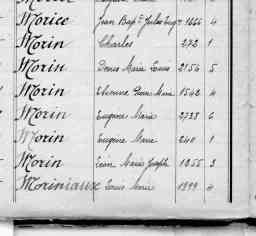 Morice Jean Bapt Jules Eug 1666 4
Morin Charles 272 1
Morin Denis Marie Louis 2154 5
Morin Etienne Pierre Marie 1542 4
Morin Eugène Marie 2733 6
Morin Eugène Marie 240 1
Morin Léon Marie Joseph 1055 3
Moriniaux Louis 1999 4